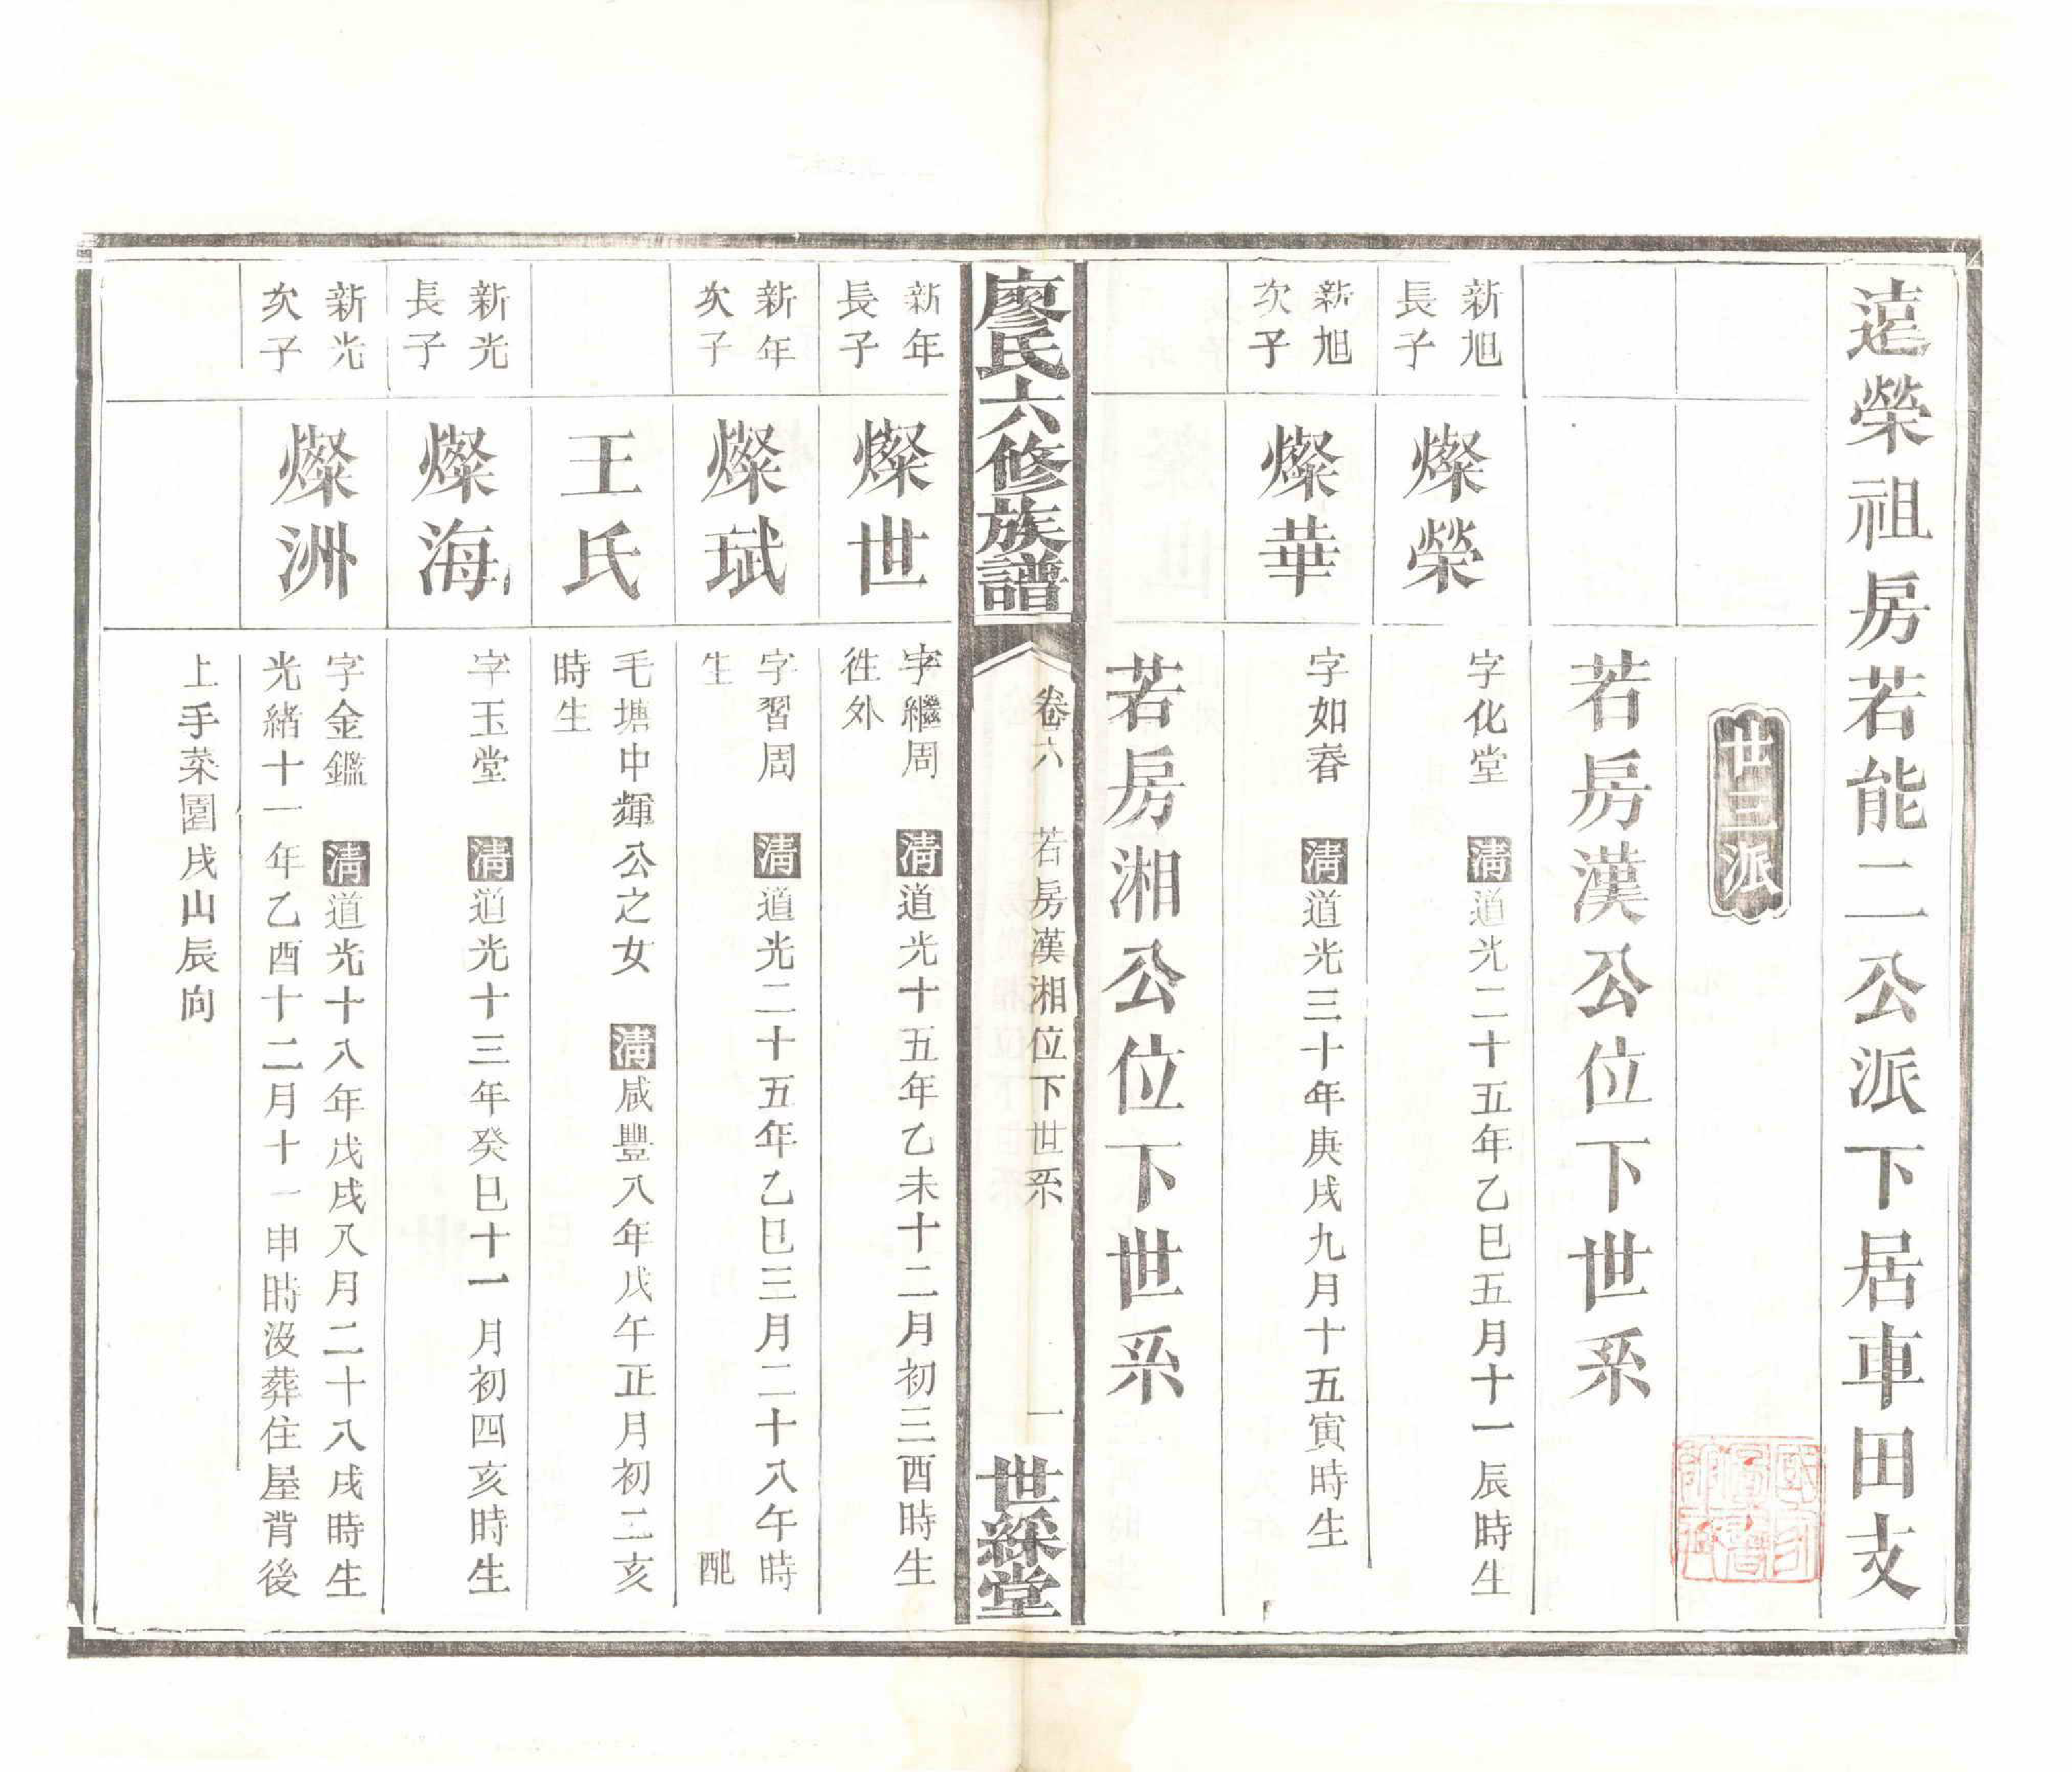 遠榮祖房若能二公派下居車田支
廿三派
若房漢公位下世系
新旭
長子
燦榮
字化堂 清道光二十五年乙巳五月十一辰時生
新旭
次子
燦華
字如春 清道光三十年庚戌九月十五寅時生
若房湘公位下世系
廖氏六修族譜
卷六 若房漢湘位下世系 一
世綵堂
新年
長子
燦世
字繼周 清道光十五年乙未十二月初三酉時生
徃外
新年
次子
燦斌
字習周 清道光二十五年乙巳三月二十八午時
生 配
王氏
毛塘中輝公之女 清咸豐八年戊午正月初二亥
時生
新光
長子
燦海
字玉堂 清道光十三年癸巳十一月初四亥時生
新光
次子
燦洲
字金鑑 清道光十八年戊戌八月二十八戌時生
光緒十一年乙酉十二月十一申時沒葬住屋背後
上手菜園戌山辰向